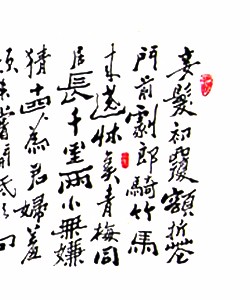 妾髮初覆額折花
門前劇郎騎竹馬
来遶牀弄青梅同
居長干里兩小無嫌
猜十四為君婦羞